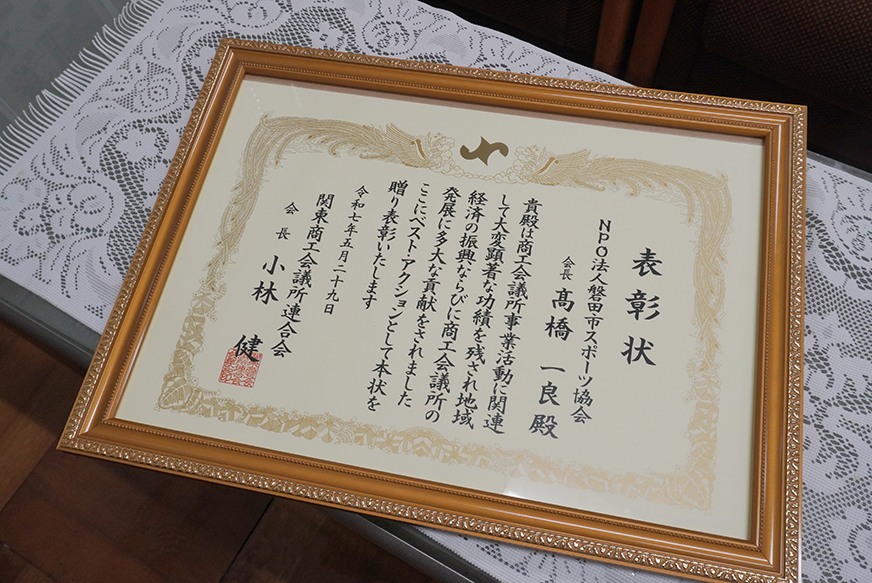 表彰状
NPO法人磐田市スポーツ協会
会長 髙橋 一良 殿
貴殿は商工会議所事業活動に関連
して大変顕著な功績を残され地域
経済の振興ならびに商工会議所の
発展に多大な貢献をされました
ここにベスト・アクションとして本状を
贈り表彰いたします
令和七年五月二十九日
関東商工会議所連合会
会長 小林 健